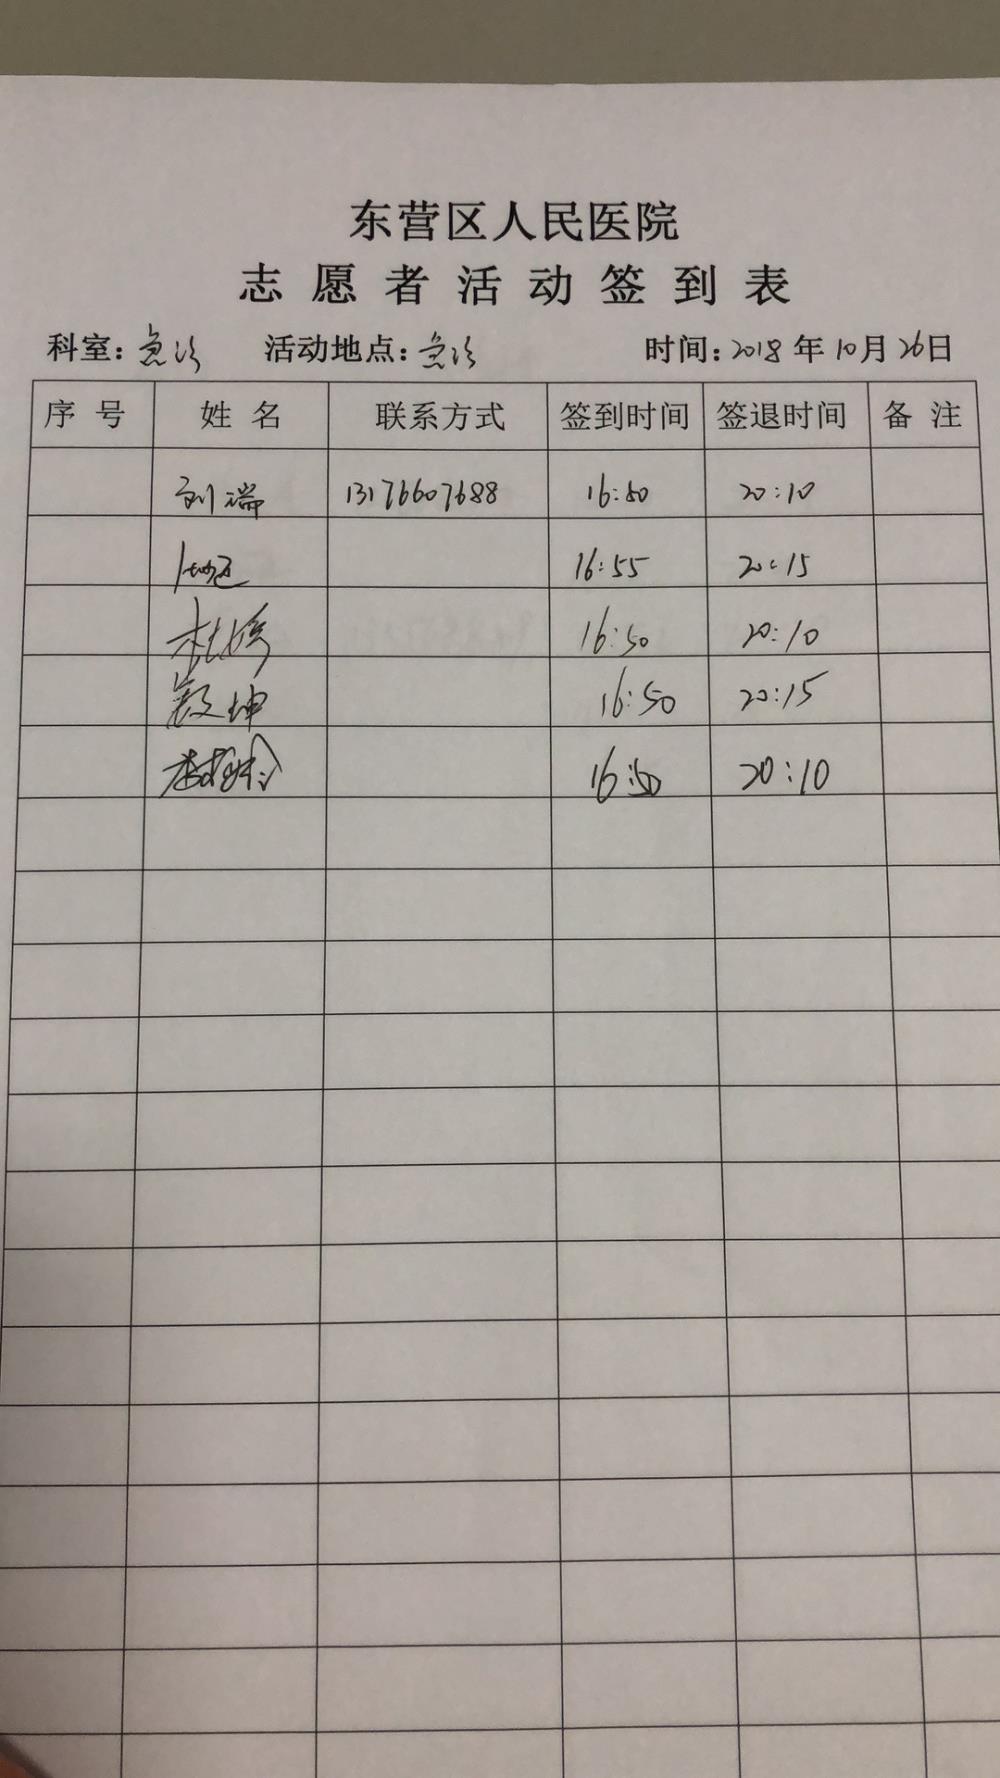 东营区人民医院
志愿者活动签到表
科室：急诊 活动地点：急诊 时间：2018年10月26日
序号 姓名 联系方式 签到时间 签退时间 备注
刘瑞 13176607688 16:50 20:10
16:55 20:15
杜婷 16:50 20:10
坤 16:50 20:15
16:50 20:10